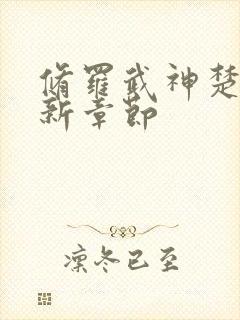 脩羅武神楚
新章節
凜冬已至